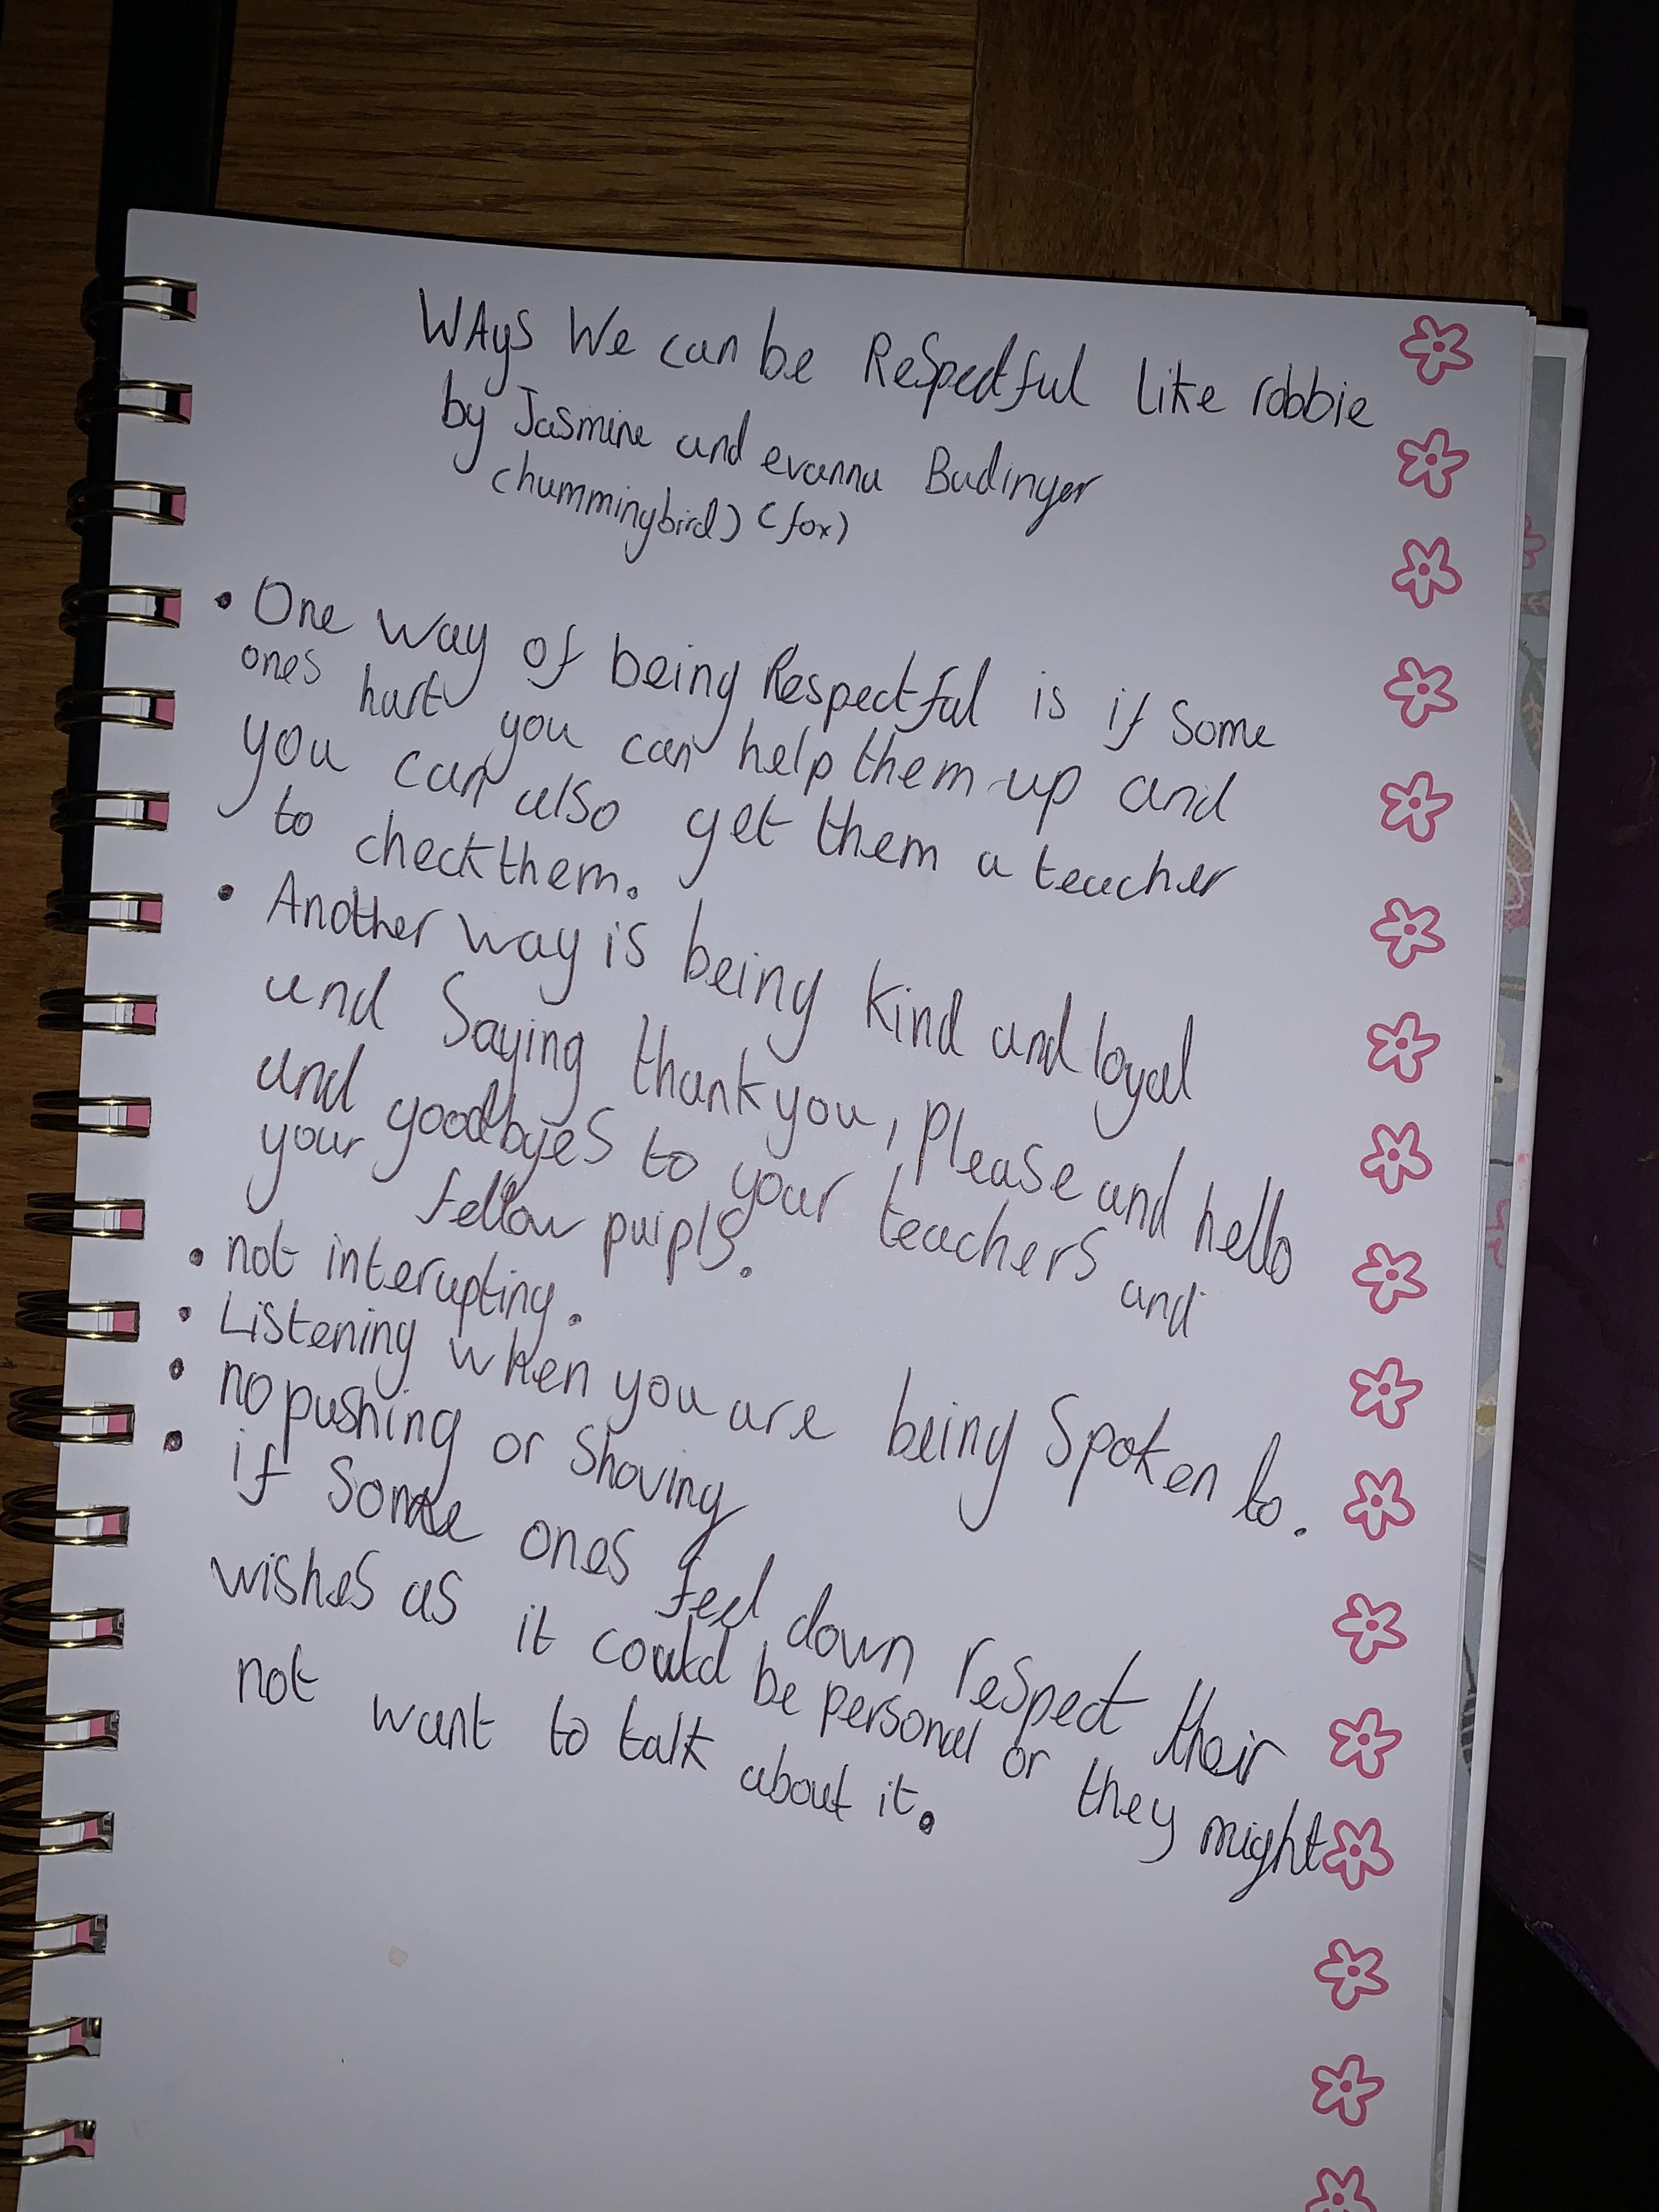 WAys We can be Respectful like robbie
by Jasmine and evanna Budinger
(hummingbird) (fox)
• One way of being Respectful is if some
ones hurt you can help them up and
you can also get them a teacher
to check them.
• Another way is being kind and loyal
and Saying thank you, please and hello
and goodbyes to your teachers and
your fellow puipls.
• not interupting.
• Listening when you are being Spoken to.
• no pushing or Shoving
• if Some ones feel down respect their
wishes as it could be personal or they might
not want to talk about it.